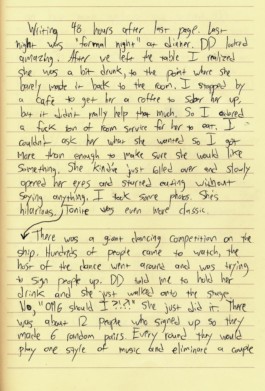 Writing 48 hours after last page. Last
night was "formal night" at dinner. DD looked
amazing. After we left the table I realized
she was a bit drunk, to the point where she
barely made it back to the room. I stopped by
a café to get her a coffee to sober her up,
but it didn't really help that much. So I ordered
a fuck ton of room service for her to eat. I
couldn't ask her what she wanted so I got
more than enough to make sure she would like
something. She kinda just rolled over and slowly
opened her eyes and started eating without
saying anything. I took some photos. She's
hilarious. Tonight was even more classic.
There was a great dancing competition on the
ship. Hundreds of people came to watch, the
host of the dance went around and was trying
to sign people up. DD told me to hold her
drink and she just walked onto the stage
No, "OMG should I ?!?!" She just did it. There
was about 12 people who signed up so they
made 6 random pairs. Every round they would
play one style of music and eliminate a couple